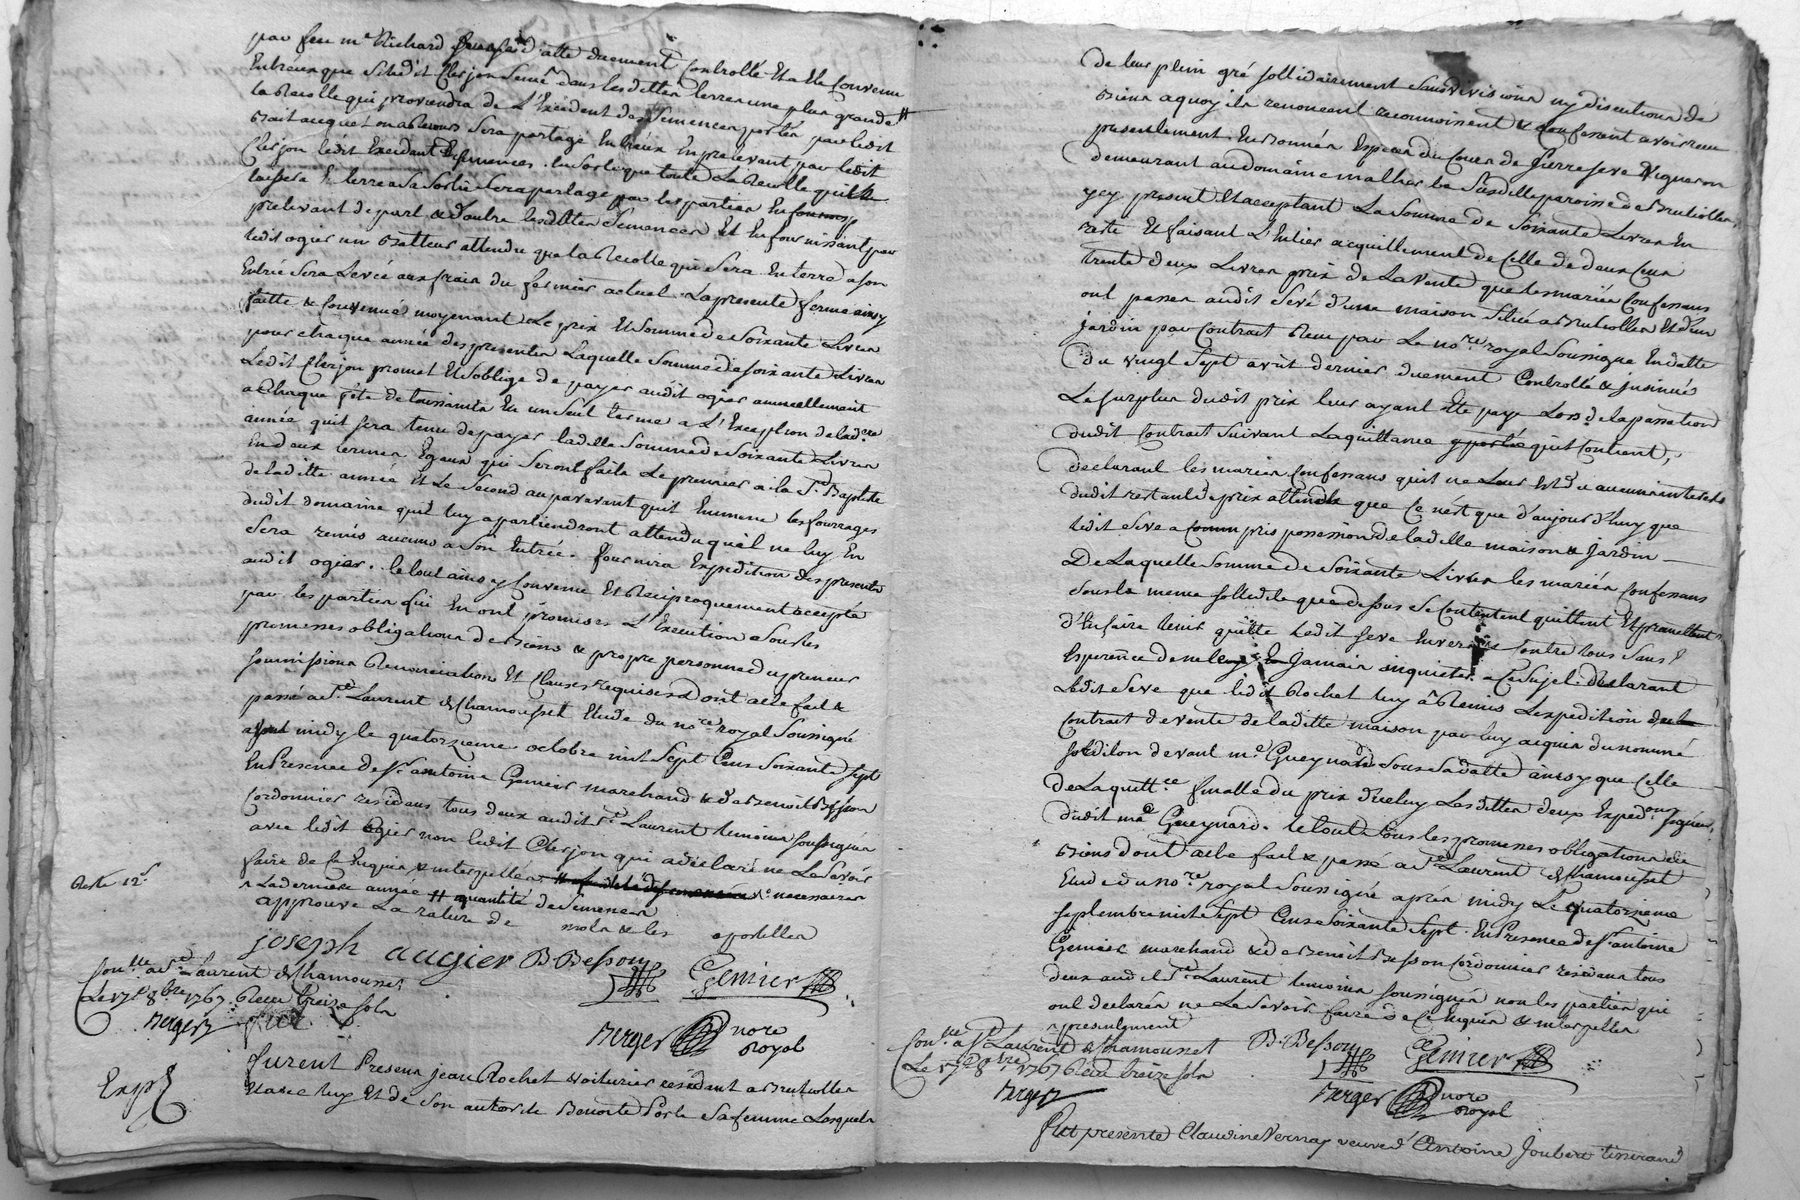 par feu me Richard duement Controllé Et a Ete Convenu
Entreux que Si ledit Clerjon Seme dans lesdittes terres une plus grande #
la Recolte qui proviendra de L'Excédent des Semences portés par ledit
Bail acquet Sera partagé Entreux En prelevant par ledit
Clerjon ledit Excedant Semences. En Sorte que toute La Recolte quil
laissera En terre a Sa Sortie Sera partagé par les parties
prelevant de part & d'autre lesdittes Semences Et En fournissant par
ledit ogier un Batteur attendu que la Recolte qui Sera En terre a son
Entrée Sera Levée aux fraix du fermier actuel. La presente ferme ainsy
faitte & Convenue moyenant Le prix Et Somme de Soixante Livres
pour chaque année des presentes Laquelle Somme de soixante Livres
Ledit Clerjon promet Et S'oblige de payer audit ogier annuellement
a Chaque fête de toussaints En un Seul terme a L'Exception de la dre
année quil sera tenu de payer laditte Somme de Soixante Livres
En deux termes Egaux qui Seront faits Le premier a la St Baptiste
de laditte année Et Le Second auparavant quil Enmene les fourrages
dudit domaine qui luy apartiendront attendu quil ne luy En
Sera remis aucuns a Son Entrée. fournira Expedition des presentes
audit ogier. le tout ainsy Convenu Et Reciproquement accepté
par les parties qui En ont promises L'Execution a Soubs
promesses obligations de Biens & propre personne du preneur
Soumissions Renonciations Et Clauses requises Dont acte fait &
passé a St Laurent de Chamousset Etude du nore royal Soussigné
avant midy le quatorzieme octobre mil Sept Cens Soixante Sept
En Presence de Sr antoine Gemier marchand & de Benoit Besson
Cordonnier residans tous deux audit St Laurent temoins soussignés
avec ledit Ogier non ledit Clerjon qui a declaré ne Le Savoir
faire de Ce Enquis & interpellé necessaires
^ La derniere année # quantité de Semences
approuvé La rature de mots & les apostilles
joseph augier B. Besson Gemier
Reste 12s
Conlle a St Laurent de Chamousset
Le 17e 8bre 1767. Reçu treize sols
Berger
Berger nore
Royal
Exp
furent Presens Jean Rochet Voiturier residant a Brullioles
Et avec luy Et de Son autorité Benoite Sa femme Lesquels
de leur plein gré sollidairement Sans divisions ny discutions de
Biens a quoy ils renoncent reconnoissent & Confessent avoir reçu
presentement En Bonnes Especes du Cours de Pierre Seve Vigneron
demeurant au domaine malherbe Susditte paroisse de Brullioles
ycy present Et acceptant La Somme de Soixante Livres En
reste Et faisant L'Entier acquittement de Celle de deux Cens
trente deux Livres prix de La Vente que les mariés Confessans
ont passés audit Seve d'une maison Située a Brullioles Et d'un
jardin par Contrat Reçu par Le nore royal Soussigné En datte
du vingt Sept avril dernier duement Controllé & jnsinué
Le surplus dudit prix leur ayant Eté payé Lors de la passation
dudit Contrat Suivant La quittance quil Contient,
declarant les mariés Confessans quil ne Leur Est du aucuns interets
dudit restant de prix attendu que Ce n'est que d'aujourd'huy que
ledit Seve a pris possession de laditte maison & Jardin
De Laquelle Somme de Soixante Livres les mariés Confessans
Sous la meme sollidité que dessus Se Contentent quittent Et promettent
d'En faire tenir quitte ledit Seve Envers & Contre tous Sans
Esperance de Jamais inquieter a Ce Sujet. declarant
Ledit Seve que ledit Rochet luy a Remis Lexpedition du
Contrat de vente de laditte maison par luy acquis du nommé
devant me Gueynard Sous Sa datte ainsy que Celle
de La quittce finalle du prix d'icelluy Lesdittes deux Expedons Signées
dudit me Gueynard. le tout Sous les promesses obligations de
Biens dont acte fait & passé a St Laurent de Chamousset
Etude du nore royal Soussigné après midy Le quatorzieme
Septembre mil Sept Cens Soixante Sept. En Presence de Sr antoine
Gemier marchand & de Benoit Besson Cordonnier residans tous
deux audit St Laurent temoins soussignés non les parties qui
ont declarés ne Le Savoir faire de Ce Enquis & interpellés
^ presentement
Conlle a St Laurent de Chamousset
Le 17e 8bre 1767 Reçu treize sols
Berger
B. Besson Gemier
Berger nore
Royal
fut presente Claudine Vernay veuve d'Antoine Joubert tisserand